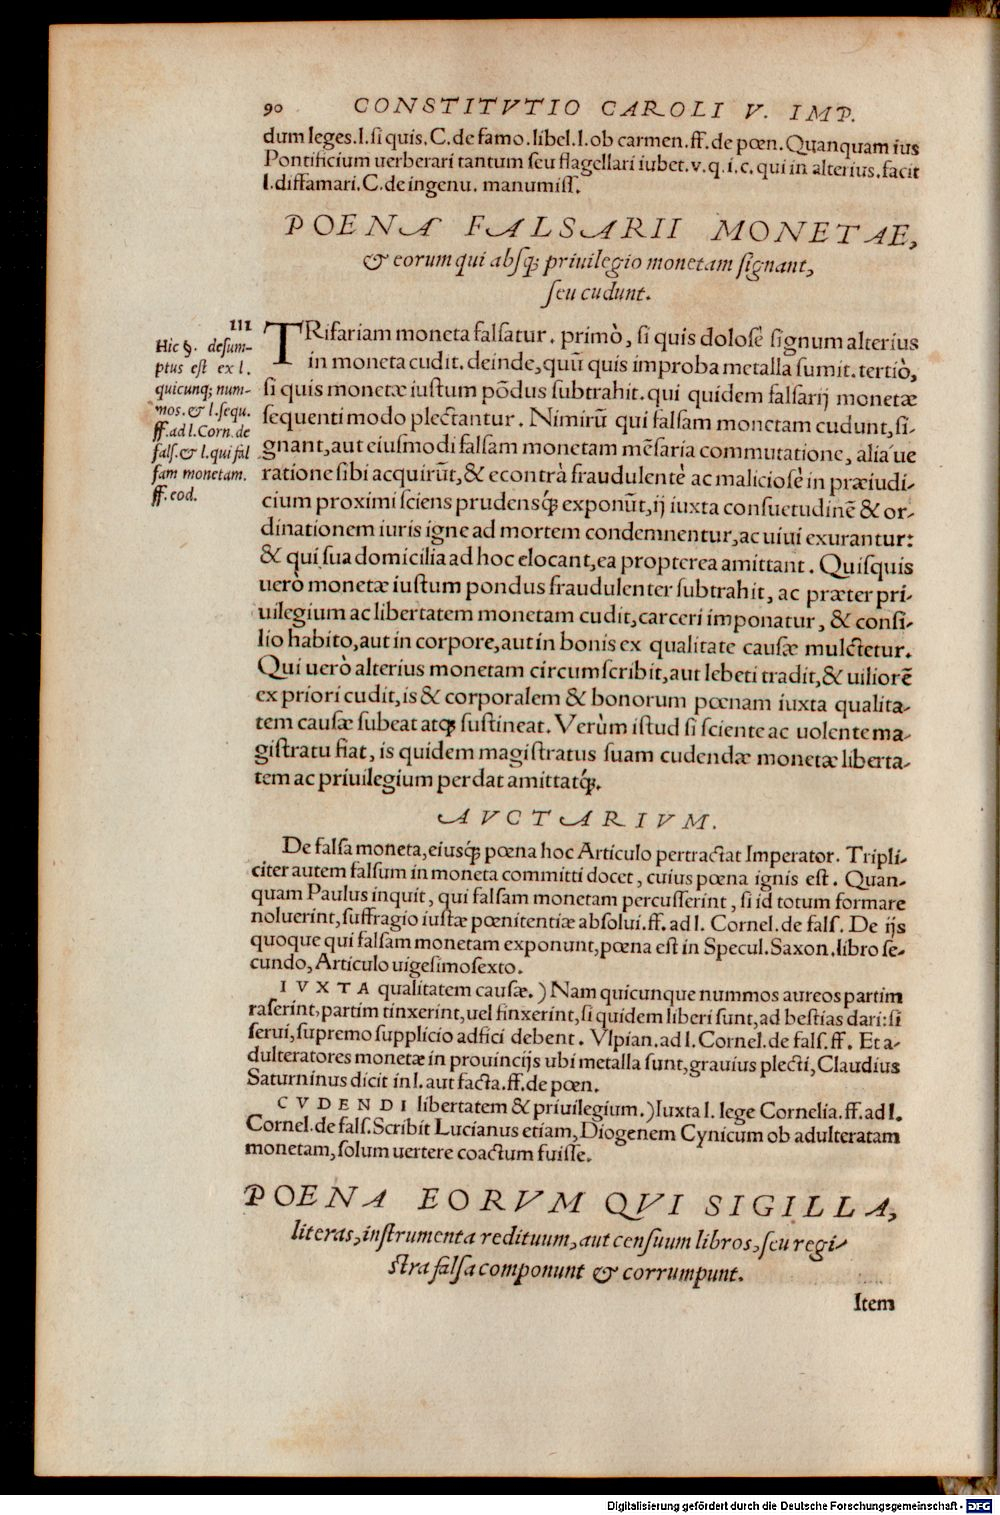 90 CONSTITVTIO CAROLI V. IMP.
dum leges.l.si quis.C.de famo.libel.l.ob carmen.ff.de pœn.Quanquam ius
Pontificium uerberari tantum seu flagellari iubet.v.q.i.c.qui in alterius.facit
l.diffamari.C.de ingenu.manumiss.
POENA FALSARII MONETAE,
& eorum qui absq; priuilegio monetam signant,
seu cudunt.
III
Hic §. desum-
ptus est ex l.
quicunq; num-
mos.& l.sequ.
ff.ad l.Corn.de
fals.& l.qui fal
sam monetam.
ff.eod.
TRifariam moneta falsatur. primò, si quis dolosè signum alterius
in moneta cudit.deinde,quũ quis improba metalla sumit.tertiò,
si quis monetæ iustum põdus subtrahit.qui quidem falsarij monetæ
sequenti modo plectantur. Nimirũ qui falsam monetam cudunt,si-
gnant,aut eiusmodi falsam monetam mẽsaria commutatione, alia ue
ratione sibi acquirũt,& econtrà fraudulentè ac maliciosè in præiudi-
cium proximi sciens prudensq́; exponũt,ij iuxta consuetudinẽ & or-
dinationem iuris igne ad mortem condemnentur,ac uiui exurantur:
& qui sua domicilia ad hoc elocant,ea propterea amittant. Quisquis
uerò monetæ iustum pondus fraudulenter subtrahit, ac præter pri-
uilegium ac libertatem monetam cudit,carceri imponatur, & consi-
lio habito,aut in corpore,aut in bonis ex qualitate causæ mulctetur.
Qui uerò alterius monetam circumscribit,aut lebeti tradit,& uiliorẽ
ex priori cudit,is & corporalem & bonorum pœnam iuxta qualita-
tem causæ subeat atq; sustineat. Verùm istud si sciente ac uolente ma-
gistratu fiat, is quidem magistratus suam cudendæ monetæ liberta-
tem ac priuilegium perdat amittatq́;.
AVCTARIVM.
De falsa moneta,eiusq́; pœna hoc Articulo pertractat Imperator. Tripli-
citer autem falsum in moneta committi docet, cuius pœna ignis est. Quan-
quam Paulus inquit, qui falsam monetam percusserint, si id totum formare
noluerint,suffragio iustæ pœnitentiæ absolui.ff.ad l. Cornel.de fals. De ijs
quoque qui falsam monetam exponunt,pœna est in Specul.Saxon.libro se-
cundo,Articulo uigesimosexto.
IVXTA qualitatem causæ.) Nam quicunque nummos aureos partim
raserint,partim tinxerint,uel finxerint,si quidem liberi sunt,ad bestias dari:si
serui,supremo supplicio adfici debent. Vlpian.ad l.Cornel.de fals.ff. Et a-
dulteratores monetæ in prouincijs ubi metalla sunt,grauius plecti,Claudius
Saturninus dicit in l.aut facta.ff.de pœn.
CVDENDI libertatem & priuilegium.)Iuxta l. lege Cornelia.ff.ad l.
Cornel.de fals.Scribit Lucianus etiam,Diogenem Cynicum ob adulteratam
monetam,solum uertere coactum fuisse.
POENA EORVM QVI SIGILLA,
literas,instrumenta redituum,aut censuum libros,seu regi-
stra falsa componunt & corrumpunt.
Item
Digitalisierung gefördert durch die Deutsche Forschungsgemeinschaft - DFG